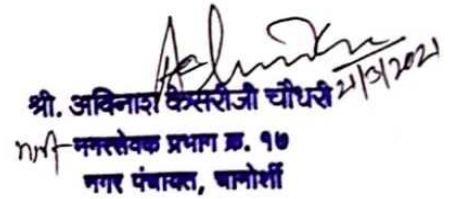 21/3/2021
श्री. अविनाश केसरीजी चौधरी
नगरसेवक प्रभाग क्र. १७
नगर पंचायत, चामोर्शी